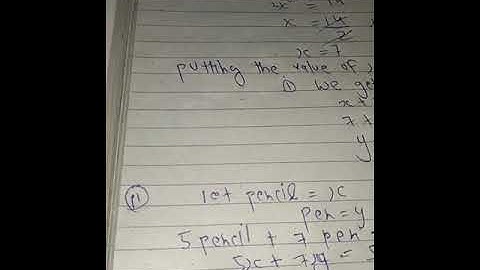 2x = 14
x = 14
2
x = 7
putting the value of x
① we get
x +
7 +
y
let pencil = x
pen = y
5 pencil + 7 pen =
5x + 7y = 5